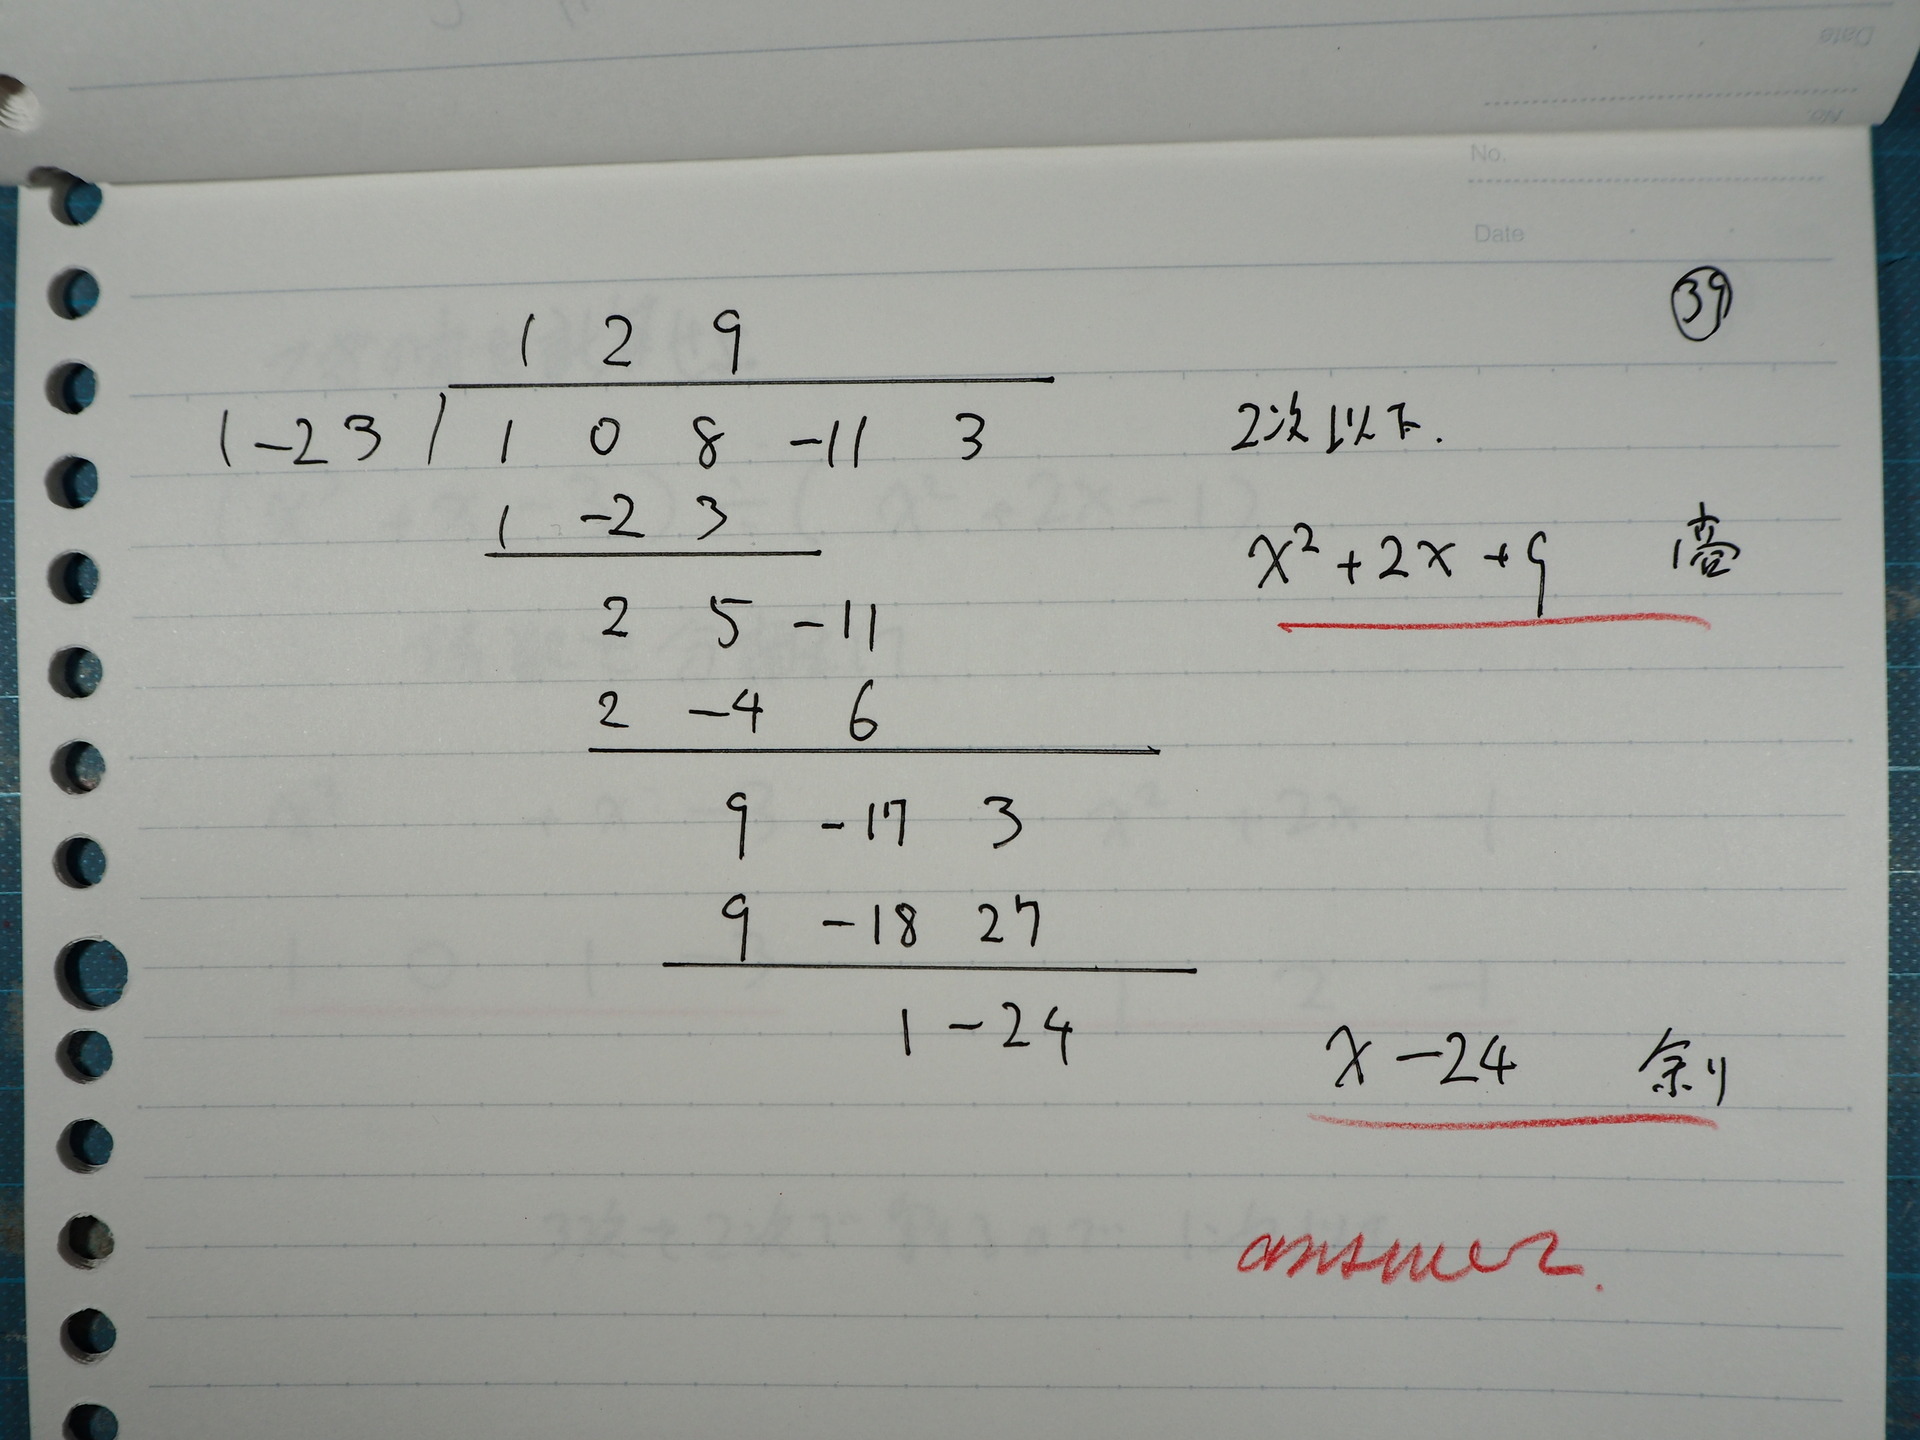 No.
Date
39
1 2 9
1 -2 3 ) 1 0 8 -11 3
2次以下.
1 -2 3
x² + 2x + 9 商
2 5 -11
2 -4 6
9 -17 3
9 -18 27
1 -24
x - 24 余り
answer.